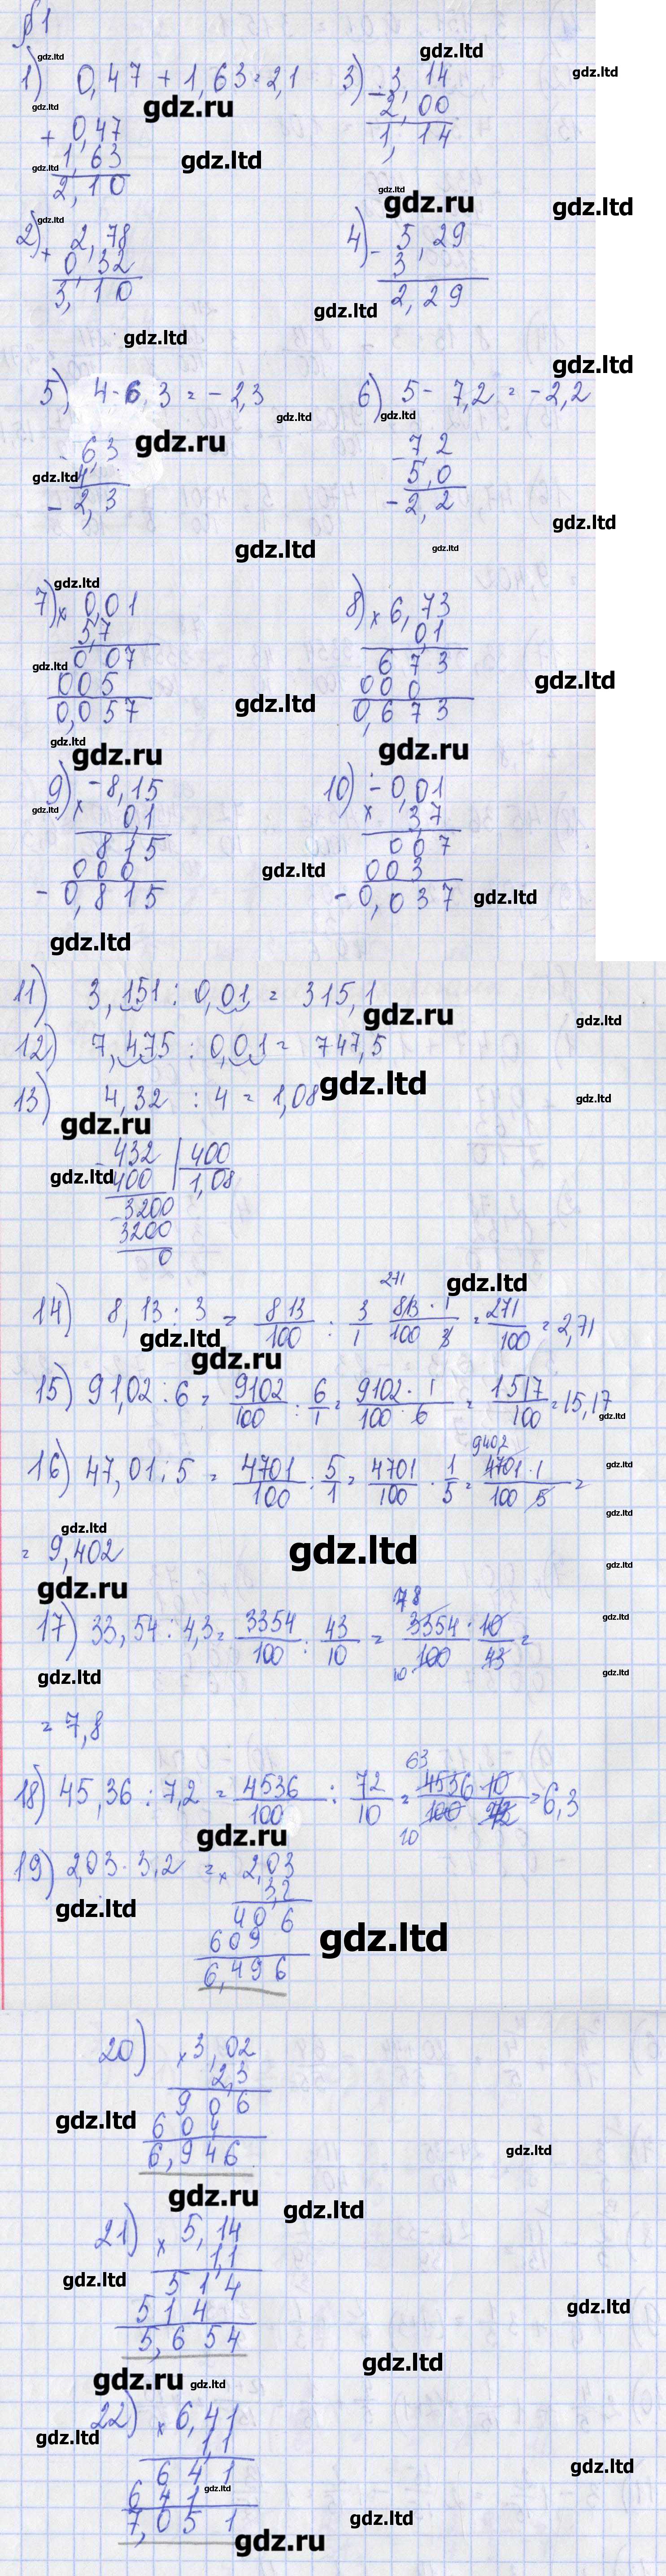 §1
1) 0,47 + 1,63 = 2,1
+ 0,47
1,63
2,10
3) - 3,14
2,00
1,14
2) + 2,78
0,32
3,10
4) - 5,29
3
2,29
5) 4 - 6,3 = -2,3
- 6,3
4,
- 2,3
6) 5 - 7,2 = -2,2
- 7,2
5,0
- 2,2
7) × 0,01
5,7
0 07
005
0,057
8) × 6,73
0,1
673
000
0,673
9) × -8,15
0,1
815
000
- 0,815
10) × -0,01
3,7
007
003
- 0,037
11) 3,151 : 0,01 = 315,1
12) 7,475 : 0,01 = 747,5
13) 4,32 : 4 = 1,08
- 432 | 400
400 | 1,08
- 3200
3200
0
14) 8,13 : 3 = 813/100 : 3/1 813 · 1 / 100 · 3 = 271/100 = 2,71
271
15) 91,02 : 6 = 9102/100 : 6/1 = 9102 · 1 / 100 · 6 = 1517/100 = 15,17
16) 47,01 : 5 = 4701/100 : 5/1 = 4701/100 · 1/5 = 4701 · 1 / 100 · 5 =
9402
= 9,402
17) 33,54 : 4,3 = 3354/100 : 43/10 = 3354/100 · 10/43 =
78
10
= 7,8
18) 45,36 : 7,2 = 4536/100 : 72/10 = 4536 · 10 / 100 · 72 = 6,3
63
10
19) 2,03 · 3,2 = × 2,03
3,2
406
609
6,496
20) × 3,02
2,3
906
604
6,946
21) × 5,14
1,1
514
514
5,654
22) × 6,41
1,1
641
641
7,051
gdz.ltd
gdz.ru